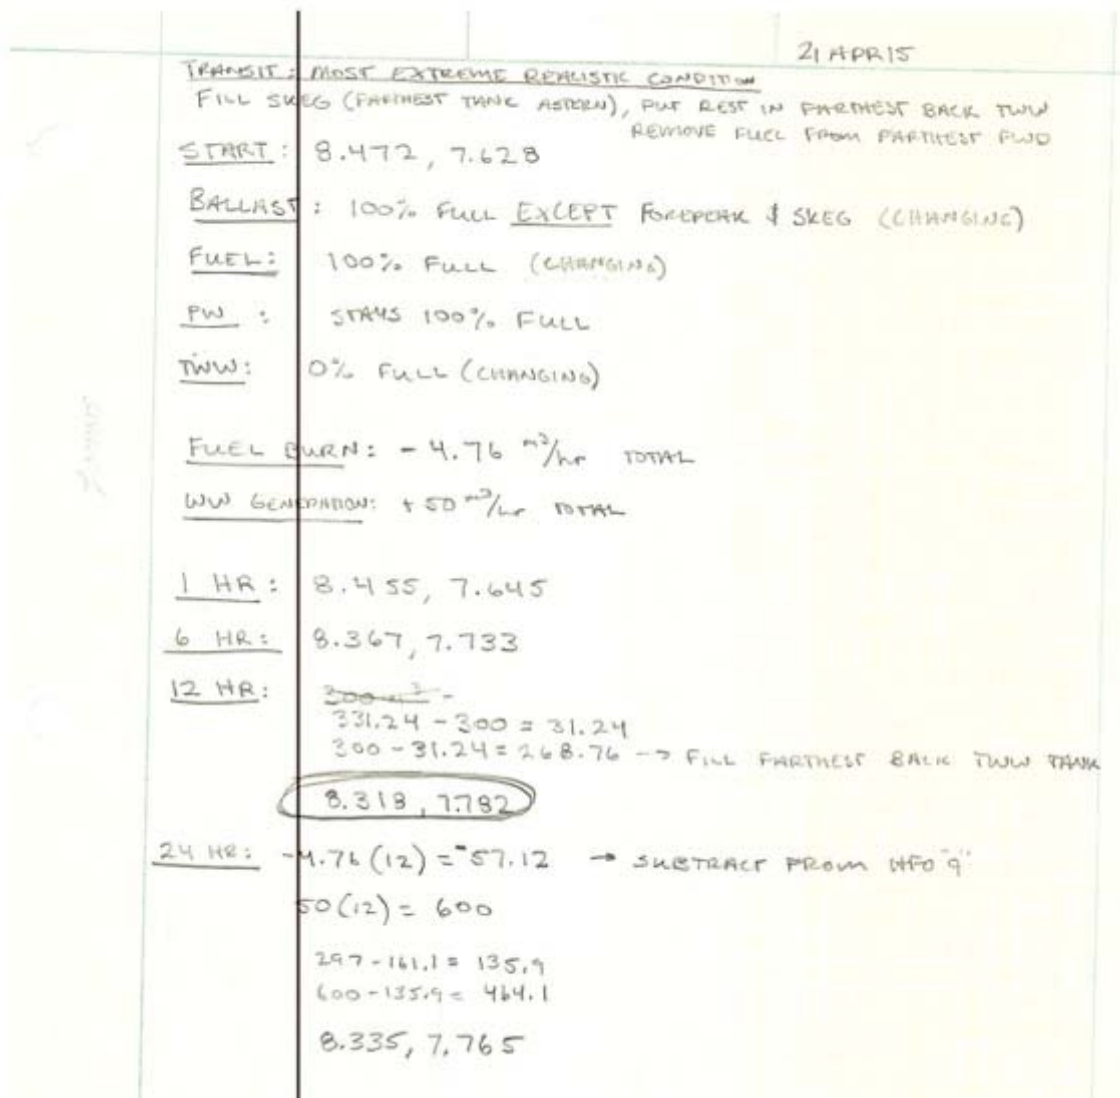 21 APR15
TRANSIT: MOST EXTREME REALISTIC CONDITION
FILL SKEG (FARTHEST TANK ASTERN), PUT REST IN FARTHEST BACK TWW
REMOVE FUEL FROM FARTHEST FWD
START: 8.472, 7.628
BALLAST: 100% FULL EXCEPT FOREPEAK & SKEG (CHANGING)
FUEL: 100% FULL (CHANGING)
PW : STAYS 100% FULL
TWW: 0% FULL (CHANGING)
FUEL BURN: - 4.76 m³/hr TOTAL
WW GENERATION: + 50 m³/hr TOTAL
1 HR: 8.455, 7.645
6 HR: 8.367, 7.733
12 HR: 300 m³ -
331.24 - 300 = 31.24
300 - 31.24 = 268.76 -> FILL FARTHEST BACK TWW TANK
8.318, 7.782
24 HR: -4.76 (12) = -57.12 → SUBTRACT FROM HFO "9"
50 (12) = 600
297 - 161.1 = 135.9
600 - 135.9 = 464.1
8.335, 7.765